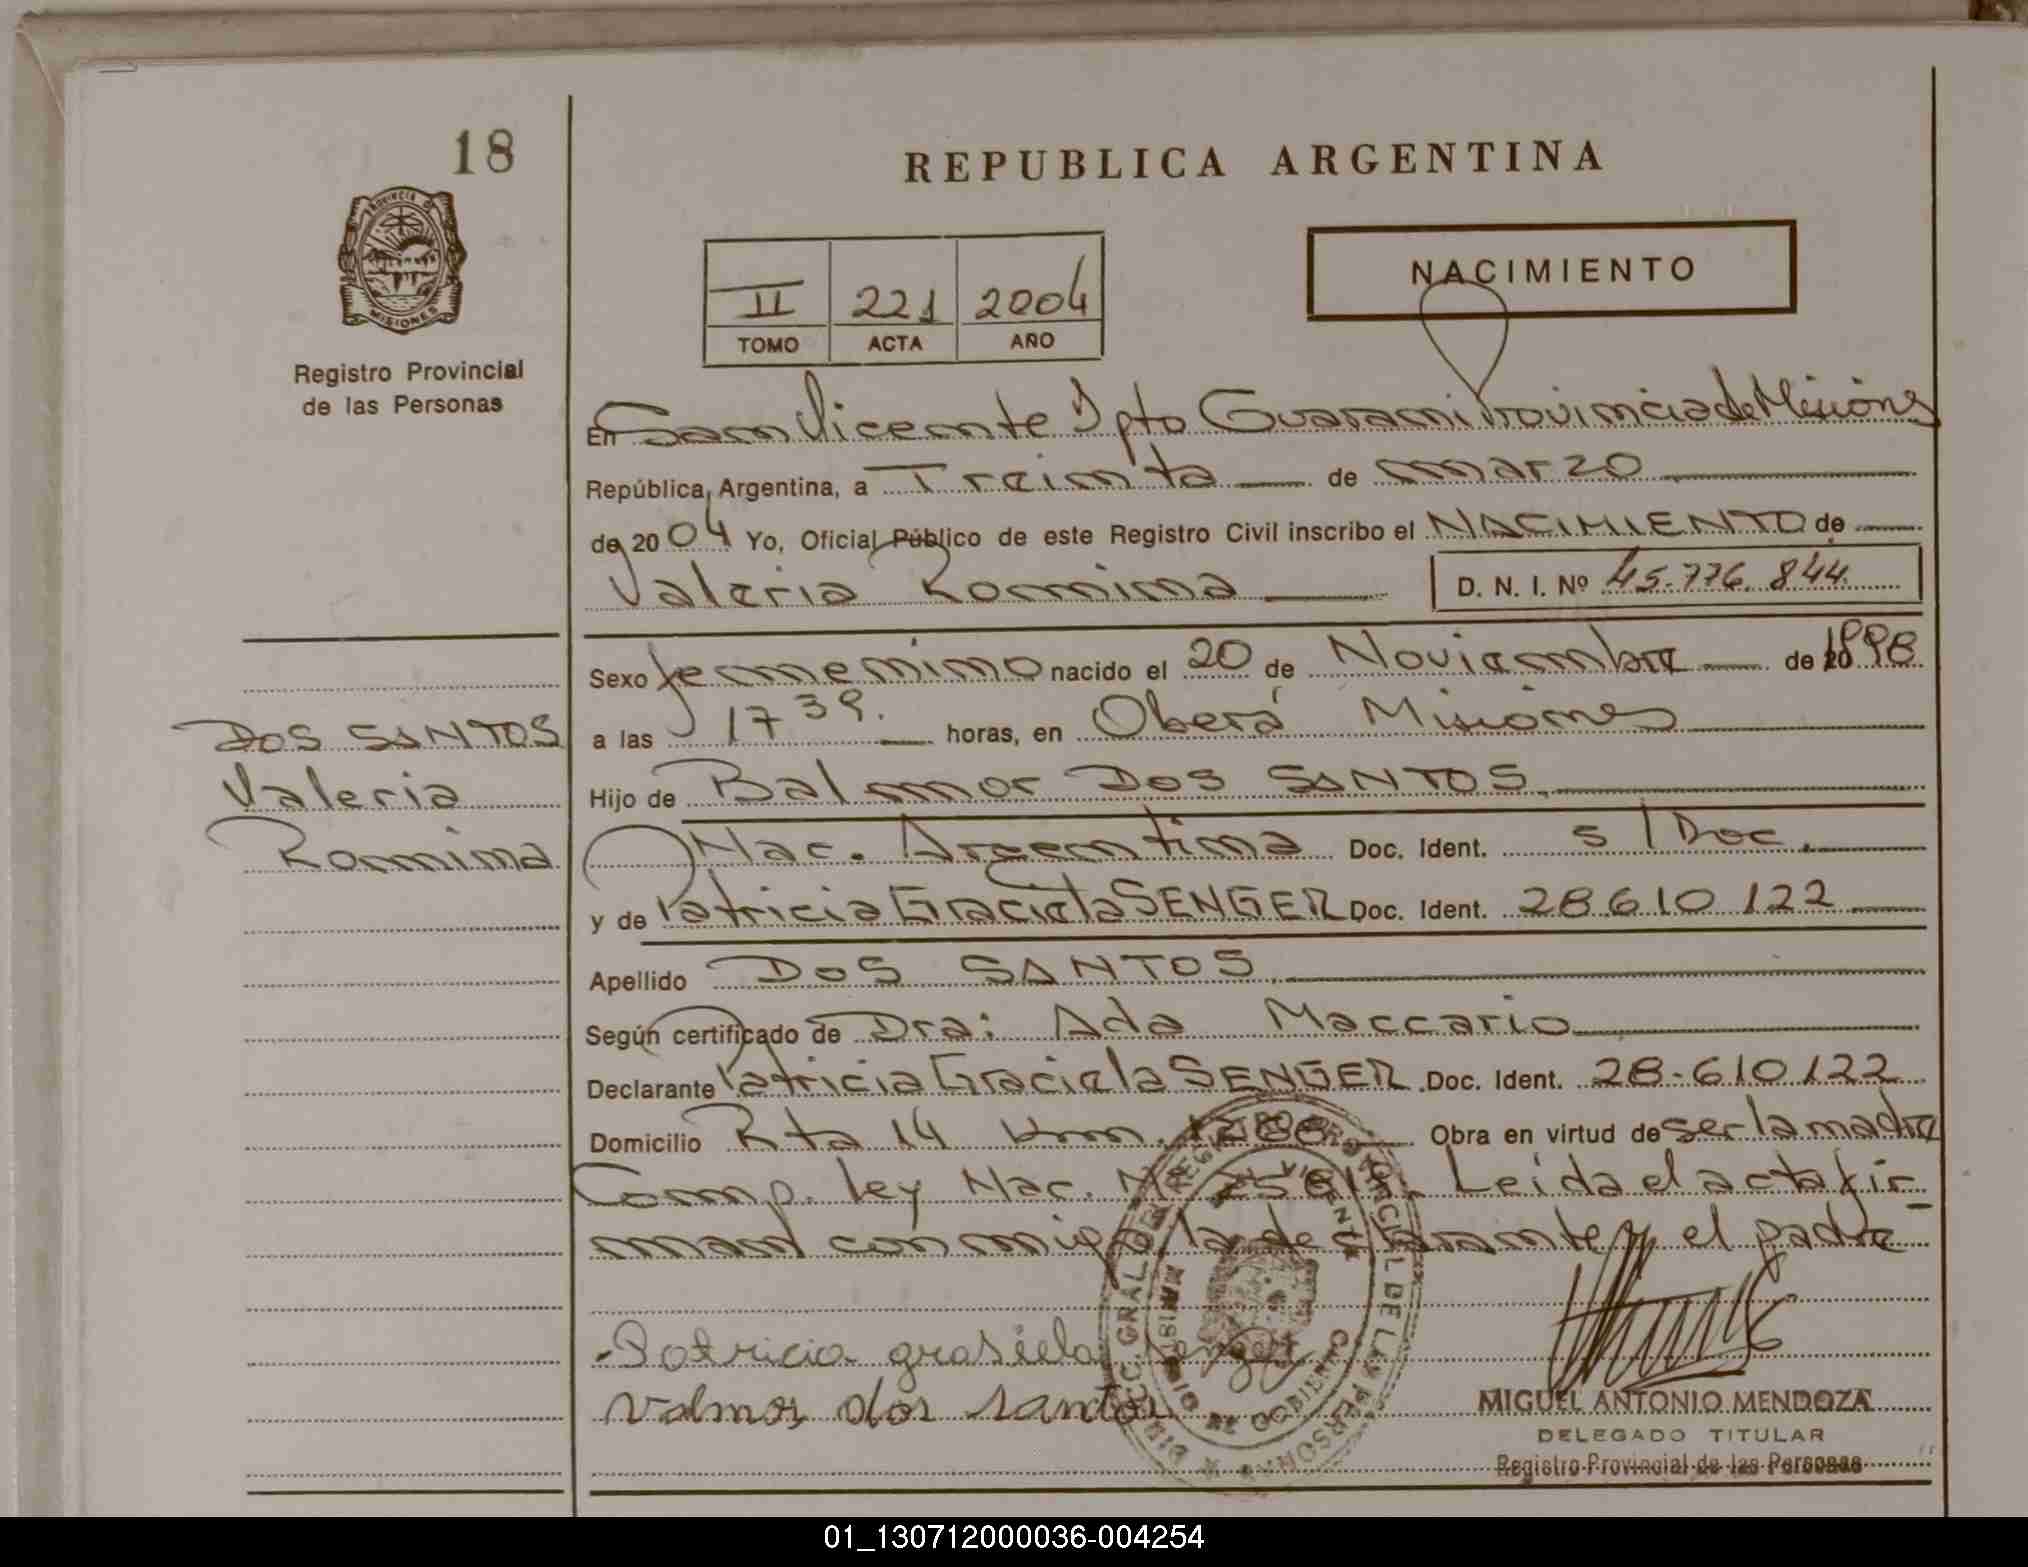 18
REPUBLICA ARGENTINA
PROVINCIA D
MISIONES
Registro Provincial
de las Personas
II 221 2004
TOMO ACTA AÑO
NACIMIENTO
En San Vicente Dpto Guarani Provincia de Misiones
República Argentina, a Treinta de marzo
de 2004 Yo, Oficial Público de este Registro Civil inscribo el NACIMIENTO de
Valeria Romina D. N. I. Nº 45.776.844
Sexo femenino nacido el 20 de Noviembre de 1998
a las 17 39. horas, en Oberá Misiones
DOS SANTOS
Valeria
Romina
Hijo de Balmor DOS SANTOS.
Nac. Argentina Doc. Ident. s/Doc.
y de Patricia Graciela SENGER Doc. Ident. 28 610 122
Apellido DOS SANTOS
Según certificado de Dra: Ada Maccario
Declarante Patricia Graciela SENGER Doc. Ident. 28-610 122
Domicilio Rta 14 Km. Obra en virtud de ser la madre
Comp. ley Nac. Nº Leida el acta fir-
man conmigo la declarante y el padre
Patricia grasiela
valmor dos santos
MIGUEL ANTONIO MENDOZA
DELEGADO TITULAR
Registro Provincial de las Personas
01_130712000036-004254